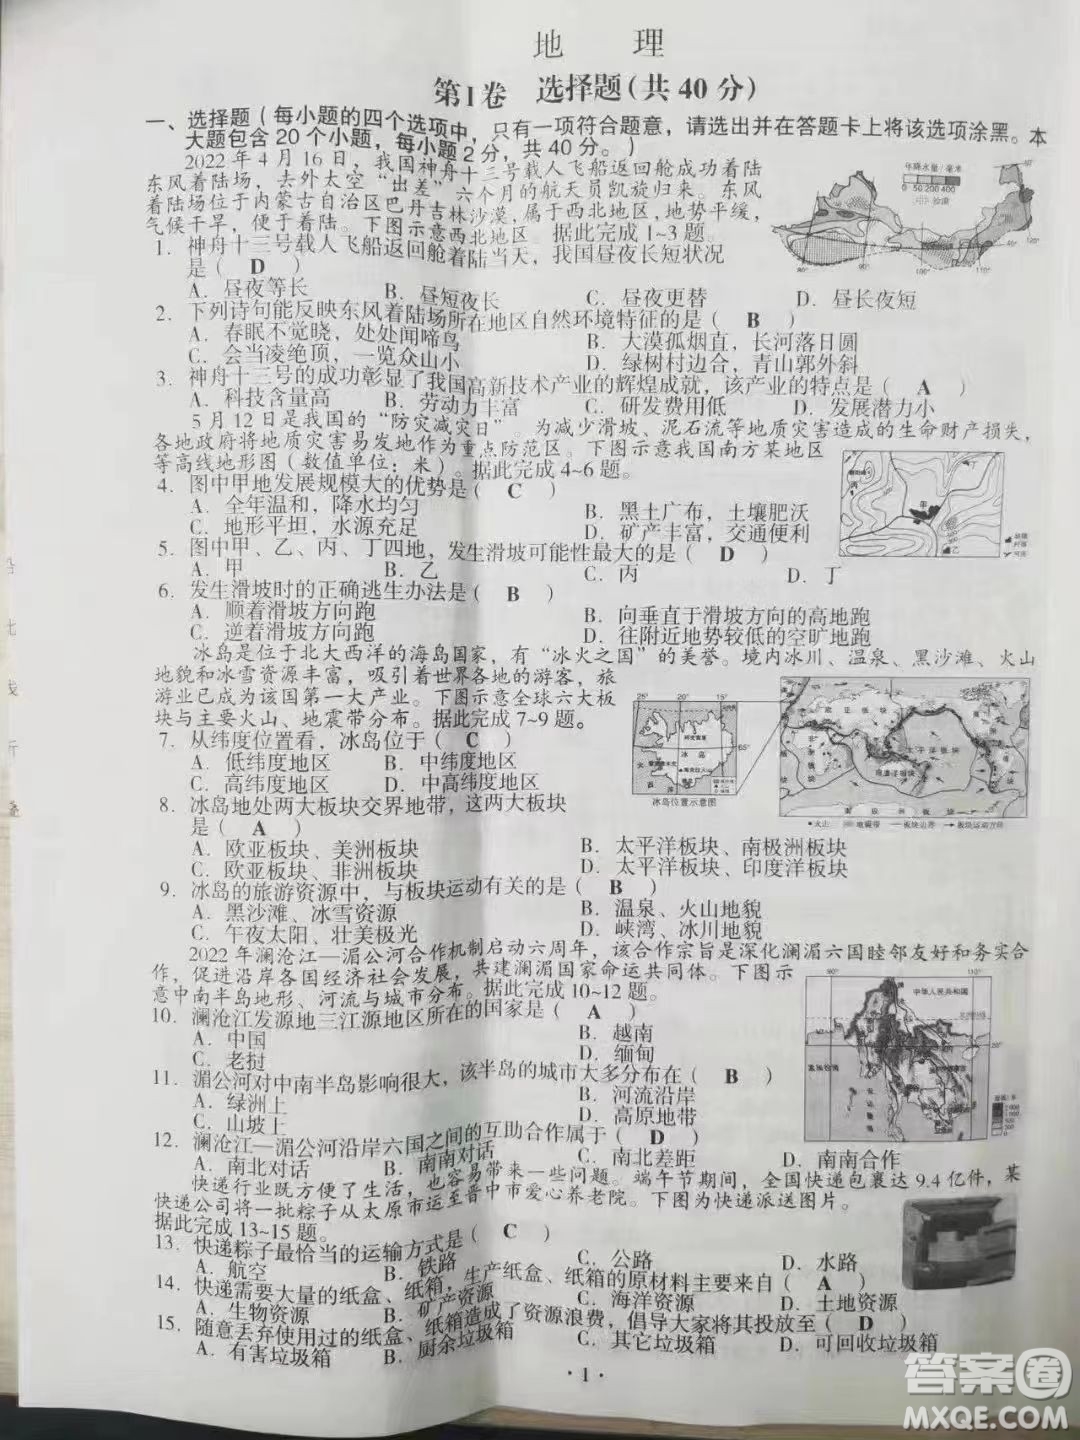 地 理
第Ⅰ卷 选择题(共 40 分)
一、选择题(每小题的四个选项中,只有一项符合题意,请选出并在答题卡上将该选项涂黑。本
大题包含 20 个小题,每小题 2 分,共 40 分。)
2022 年 4 月 16 日,我国神舟十三号载人飞船返回舱成功着陆
东风着陆场,去外太空“出差”六个月的航天员凯旋归来。东风
着陆场位于内蒙古自治区巴丹吉林沙漠,属于西北地区,地势平缓,
气候干旱,便于着陆。下图示意西北地区。据此完成 1~3 题。
年降水量/毫米
0 50 200 400
沙漠
1. 神舟十三号载人飞船返回舱着陆当天,我国昼夜长短状况
是( D )
A. 昼夜等长 B. 昼短夜长 C. 昼夜更替 D. 昼长夜短
2. 下列诗句能反映东风着陆场所在地区自然环境特征的是( B )
A. 春眠不觉晓,处处闻啼鸟 B. 大漠孤烟直,长河落日圆
C. 会当凌绝顶,一览众山小 D. 绿树村边合,青山郭外斜
3. 神舟十三号的成功彰显了我国高新技术产业的辉煌成就,该产业的特点是( A )
A. 科技含量高 B. 劳动力丰富 C. 研发费用低 D. 发展潜力小
5 月 12 日是我国的“防灾减灾日”。为减少滑坡、泥石流等地质灾害造成的生命财产损失,
各地政府将地质灾害易发地作为重点防范区。下图示意我国南方某地区
等高线地形图(数值单位:米)。据此完成 4~6 题。
4. 图中甲地发展规模大的优势是( C )
A. 全年温和,降水均匀 B. 黑土广布,土壤肥沃
C. 地形平坦,水源充足 D. 矿产丰富,交通便利
5. 图中甲、乙、丙、丁四地,发生滑坡可能性最大的是( D )
A. 甲 B. 乙 C. 丙 D. 丁
6. 发生滑坡时的正确逃生办法是( B )
A. 顺着滑坡方向跑 B. 向垂直于滑坡方向的高地跑
C. 逆着滑坡方向跑 D. 往附近地势较低的空旷地跑
冰岛是位于北大西洋的海岛国家,有“冰火之国”的美誉。境内冰川、温泉、黑沙滩、火山
地貌和冰雪资源丰富,吸引着世界各地的游客,旅
游业已成为该国第一大产业。下图示意全球六大板
块与主要火山、地震带分布。据此完成 7~9 题。
7. 从纬度位置看,冰岛位于( C )
A. 低纬度地区 B. 中纬度地区
C. 高纬度地区 D. 中高纬度地区
冰岛位置示意图
火山 地震带 板块边界 板块运动方向
8. 冰岛地处两大板块交界地带,这两大板块
是( A )
A. 欧亚板块、美洲板块 B. 太平洋板块、南极洲板块
C. 欧亚板块、非洲板块 D. 太平洋板块、印度洋板块
9. 冰岛的旅游资源中,与板块运动有关的是( B )
A. 黑沙滩、冰雪资源 B. 温泉、火山地貌
C. 午夜太阳、壮美极光 D. 峡湾、冰川地貌
2022 年澜沧江—湄公河合作机制启动六周年,该合作宗旨是深化澜湄六国睦邻友好和务实合
作,促进沿岸各国经济社会发展,共建澜湄国家命运共同体。下图示
意中南半岛地形、河流与城市分布。据此完成 10~12 题。
中华人民共和国
10. 澜沧江发源地三江源地区所在的国家是( A )
A. 中国 B. 越南
C. 老挝 D. 缅甸
11. 湄公河对中南半岛影响很大,该半岛的城市大多分布在( B )
A. 绿洲上 B. 河流沿岸
C. 山坡上 D. 高原地带
12. 澜沧江—湄公河沿岸六国之间的互助合作属于( D )
A. 南北对话 B. 南南对话 C. 南北差距 D. 南南合作
快递行业既方便了生活,也容易带来一些问题。端午节期间,全国快递包裹达 9.4 亿件,某
快递公司将一批粽子从太原市运至晋中市爱心养老院。下图为快递派送图片。
据此完成 13~15 题。
13. 快递粽子最恰当的运输方式是( C )
A. 航空 B. 铁路 C. 公路 D. 水路
14. 快递需要大量的纸盒、纸箱,生产纸盒、纸箱的原材料主要来自( A )
A. 生物资源 B. 矿产资源 C. 海洋资源 D. 土地资源
15. 随意丢弃使用过的纸盒、纸箱造成了资源浪费,倡导大家将其投放至( D )
A. 有害垃圾箱 B. 厨余垃圾箱 C. 其它垃圾箱 D. 可回收垃圾箱
· 1 ·
答案圈
MXQE.COM